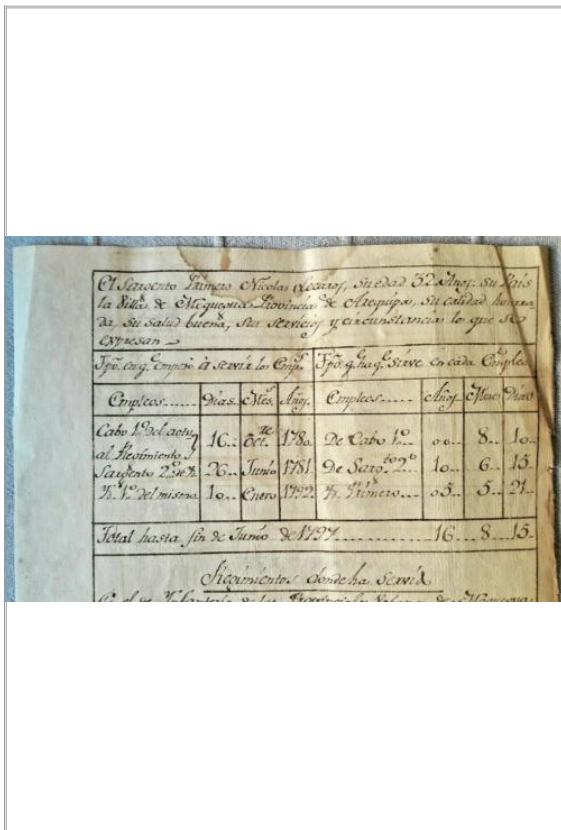 El Sargento Primero Nicolas Lecaros, su edad 32 Años, su Pais
la Villa de Moquegua Provincia de Arequipa, su calidad honrra
da, su salud buena, sus servicios y circunstancias los que se
expresan
Tpo. en q. empezó á servir los Emps. Tpo. q. ha q. sirve en cada Empleo
Empleos...... Dias.. Mes.s Años. Empleos...... Años Meses Dias
Cabo 1º del actu
al Regimiento 16.. Oct.re 1780. De Cabo 1º... 00.. 8.. 10..
Sargento 2º de Yd. 26.. Junio 1781. De Sarg.to 2º 10.. 6.. 15..
Yd. 1º del mismo 10.. Enero 1792. Yd. Primero... 05.. 5.. 21..
Total hasta fin de Junio de 1797............ 16.. 8.. 15.
Regimientos donde ha servid
En el de Infanteria de